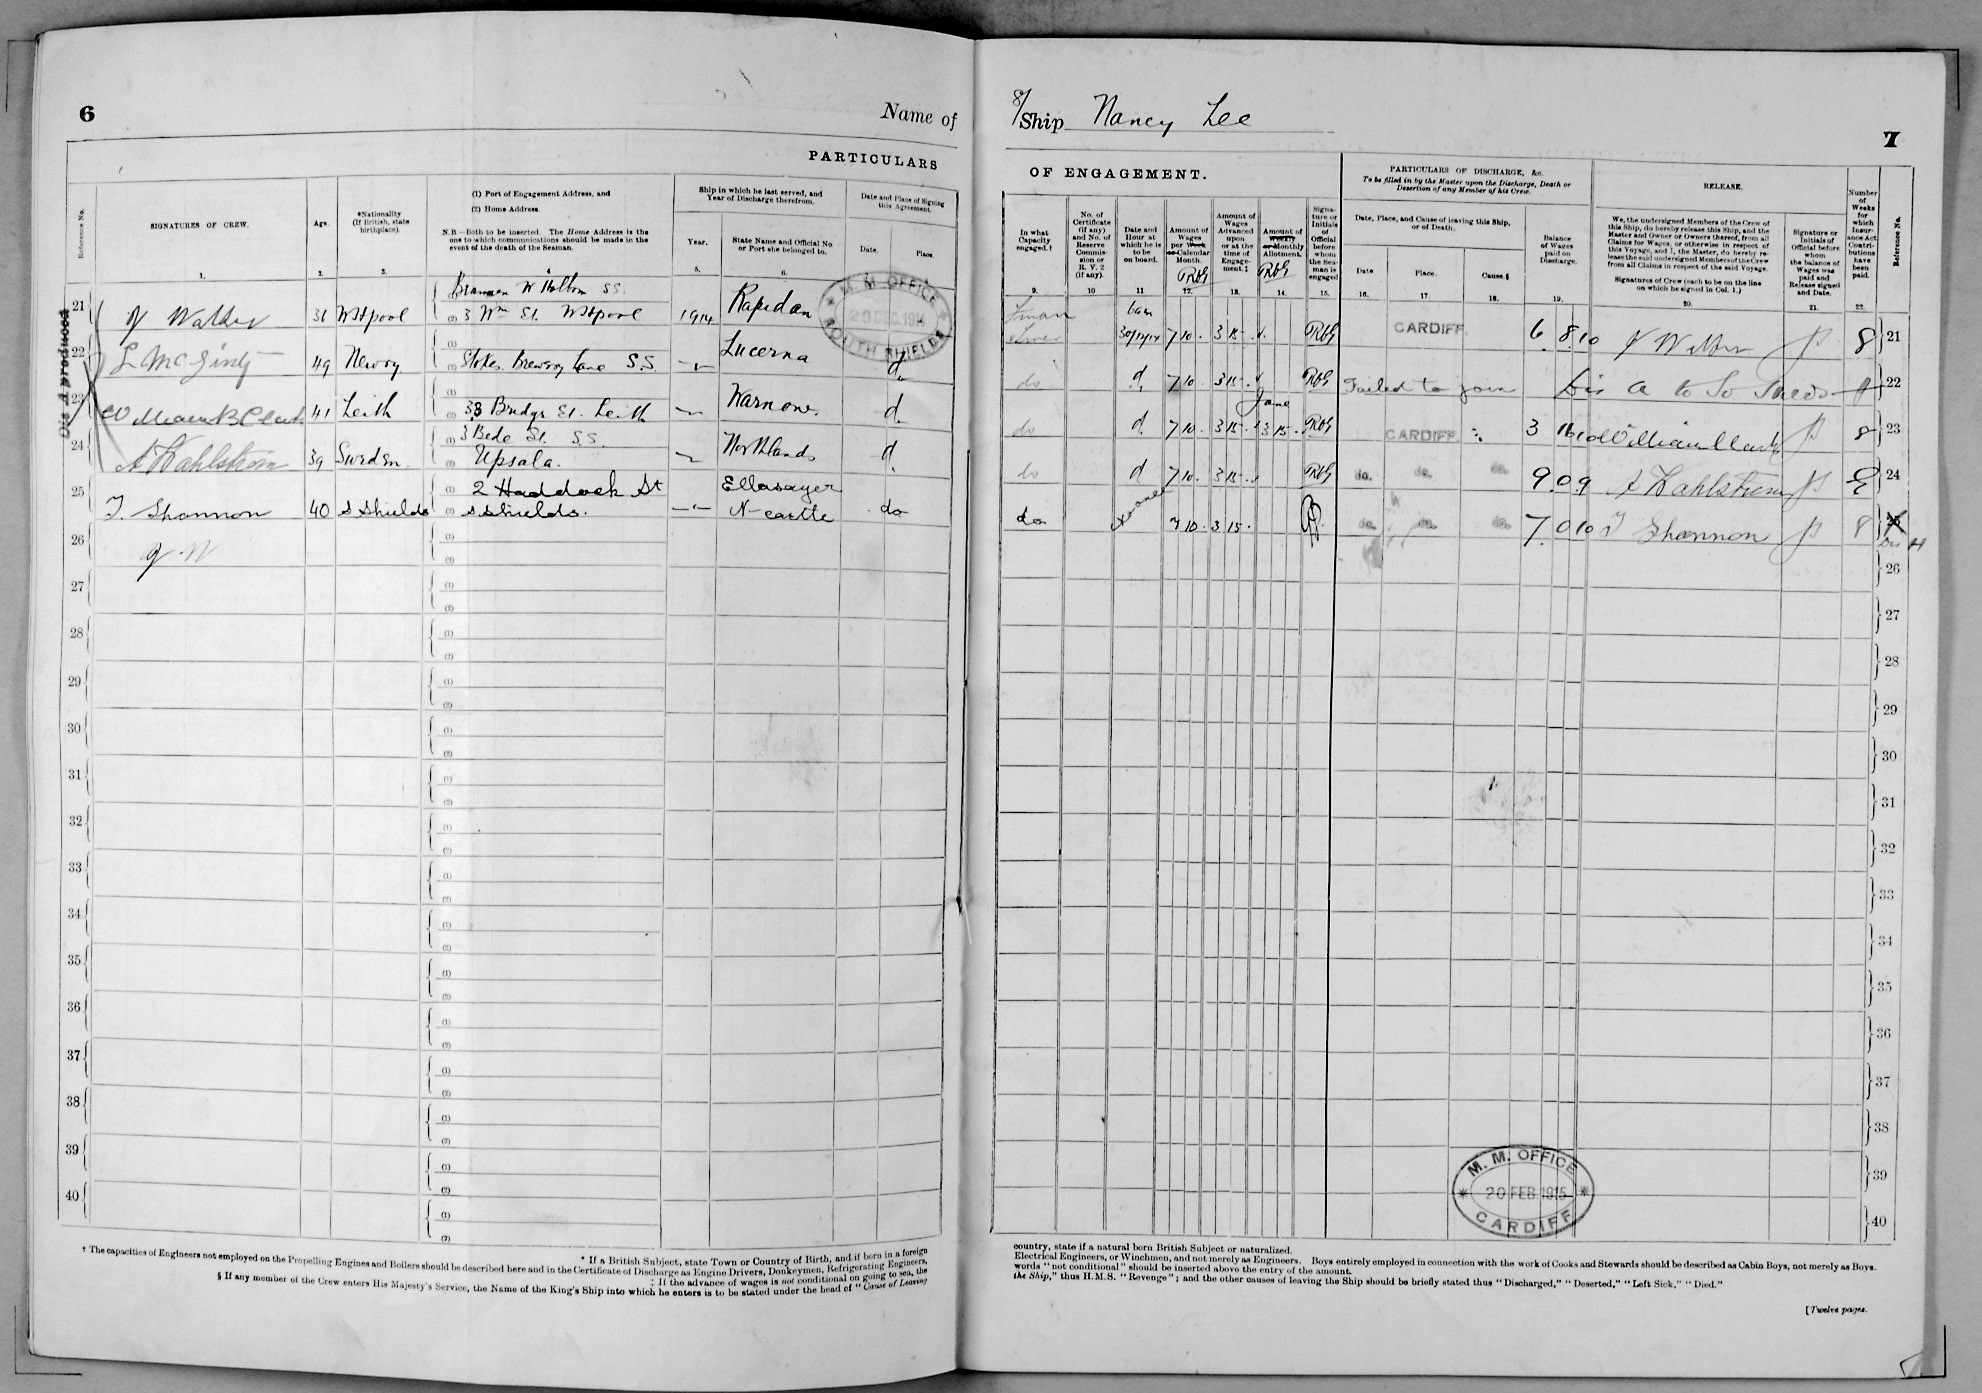 6
Name of
PARTICULARS
Reference No.
SIGNATURES OF CREW.
Age.
*Nationality
(If British, state
birthplace).
(1) Port of Engagement Address, and
(2) Home Address.
N.B.—Both to be inserted. The Home Address is the
one to which communications should be made in the
event of the death of the Seaman.
Ship in which he last served, and
Year of Discharge therefrom.
Year.
State Name and Official No.
or Port she belonged to.
Date and Place of Signing
this Agreement.
Date.
Place.
1. 2. 3. 4. 5. 6.
Dis A produced
21 J Walker 31 W Hpool
W Holborn SS.
(2) 3 Wm St. W Hpool 1914 Rapidan
M. M. OFFICE
29 DEC. 1914
SOUTH SHIELDS
22 L McGinty 49 Newry (1)
(2) Stokes Brewery Lane S.S Lucerna d
23 William B Clark 41 Leith (1)
(2) 33 Bridge St. Leith d
24 A Kahlstrom 39 Sweden (1) 3 Bede St. SS.
(2) Upsala. Northlands d
25 T. Shannon 40 S Shields (1) 2 Haddock St
(2) S Shields. N-castle do
26 J. W (1)
(2)
27 (1)
(2)
28 (1)
(2)
29 (1)
(2)
30 (1)
(2)
31 (1)
(2)
32 (1)
(2)
33 (1)
(2)
34 (1)
(2)
35 (1)
(2)
36 (1)
(2)
37 (1)
(2)
38 (1)
(2)
39 (1)
(2)
40 (1)
(2)
* If a British Subject, state Town or Country of Birth, and if born in a foreign
† The capacities of Engineers not employed on the Propelling Engines and Boilers should be described here and in the Certificate of Discharge as Engine Drivers, Donkeymen, Refrigerating Engineers,
‡ If the advance of wages is not conditional on going to sea, the
§ If any member of the Crew enters His Majesty's Service, the Name of the King's Ship into which he enters is to be stated under the head of "Cause of Leaving
S/Ship Nancy Lee
7
OF ENGAGEMENT.
PARTICULARS OF DISCHARGE, &c.
To be filled in by the Master upon the Discharge, Death or
Desertion of any Member of his Crew.
RELEASE.
In what
Capacity
engaged.†
No. of
Certificate
(if any)
and No. of
Reserve
Commis-
sion or
R. V. 2
(if any).
Date and
Hour at
which he is
to be
on board.
Amount of
Wages
per Week
or Calendar
Month.
Amount of
Wages
Advanced
upon
or at the
time of
Engage-
ment.‡
Amount of
Weekly
or Monthly
Allotment.
Signa-
ture or
Initials
of
Official
before
whom
the Sea-
man is
engaged
Date, Place, and Cause of leaving this Ship,
or of Death.
Date.
Place.
Cause.§
Balance
of Wages
paid on
Discharge.
We, the undersigned Members of the Crew of
this Ship, do hereby release this Ship, and the
Master and Owner or Owners thereof, from all
Claims for Wages, or otherwise in respect of
this Voyage, and I, the Master, do hereby re-
lease the said undersigned Members of the Crew
from all Claims in respect of the said Voyage.
Signatures of Crew (each to be on the line
on which he signed in Col. 1.)
Signature or
Initials of
Official before
whom
the balance of
Wages was
paid and
Release signed
and Date.
Number
of
Weeks
for
which
Insur-
ance Act
Contri-
butions
have
been
paid.
Reference No.
9. 10 11 12. 13. 14. 15. 16. 17. 18. 19. 20. 21. 22.
30/12/14 7 10 . 3 15 CARDIFF. 6. 8.10 J Walker 8 21
do d 7 10 . 3 15 Failed to join Dis A to So Shields 22
do d 7 10 . 3 15 3 15 CARDIFF 3 16 10 William Clark 8 23
do d 7 10 . 3 15 do. do. do. 9.0.9 A Kahlstrom 24
do at once 7 10 . 3 15 . do. do. do. 7. 0 10 T Shannon 8 25
26
27
28
29
30
31
32
33
34
35
36
37
38
39
40
M. M. OFFICE
20 FEB 1915
CARDIFF
country, state if a natural born British Subject or naturalized.
Electrical Engineers, or Winchmen, and not merely as Engineers. Boys entirely employed in connection with the work of Cooks and Stewards should be described as Cabin Boys, not merely as Boys.
words "not conditional" should be inserted above the entry of the amount.
the Ship," thus H.M.S. "Revenge"; and the other causes of leaving the Ship should be briefly stated thus "Discharged," "Deserted," "Left Sick," "Died."
[Twelve pages.